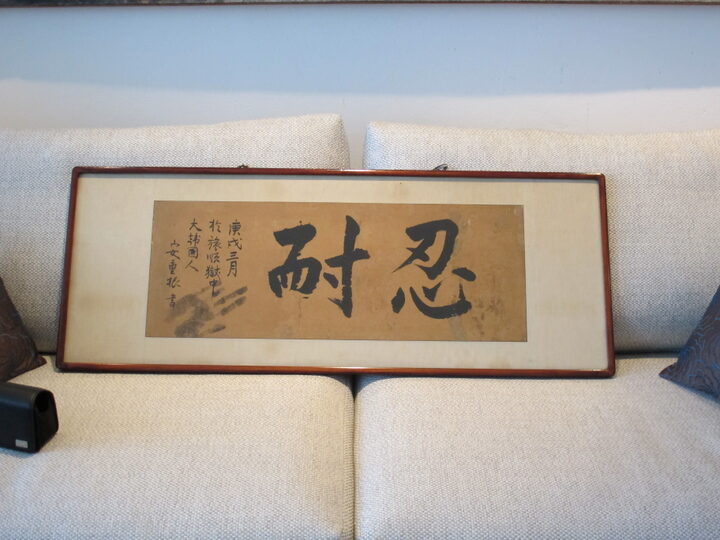 忍耐
庚戌三月
於旅順獄中
大韓國人
安重根 書